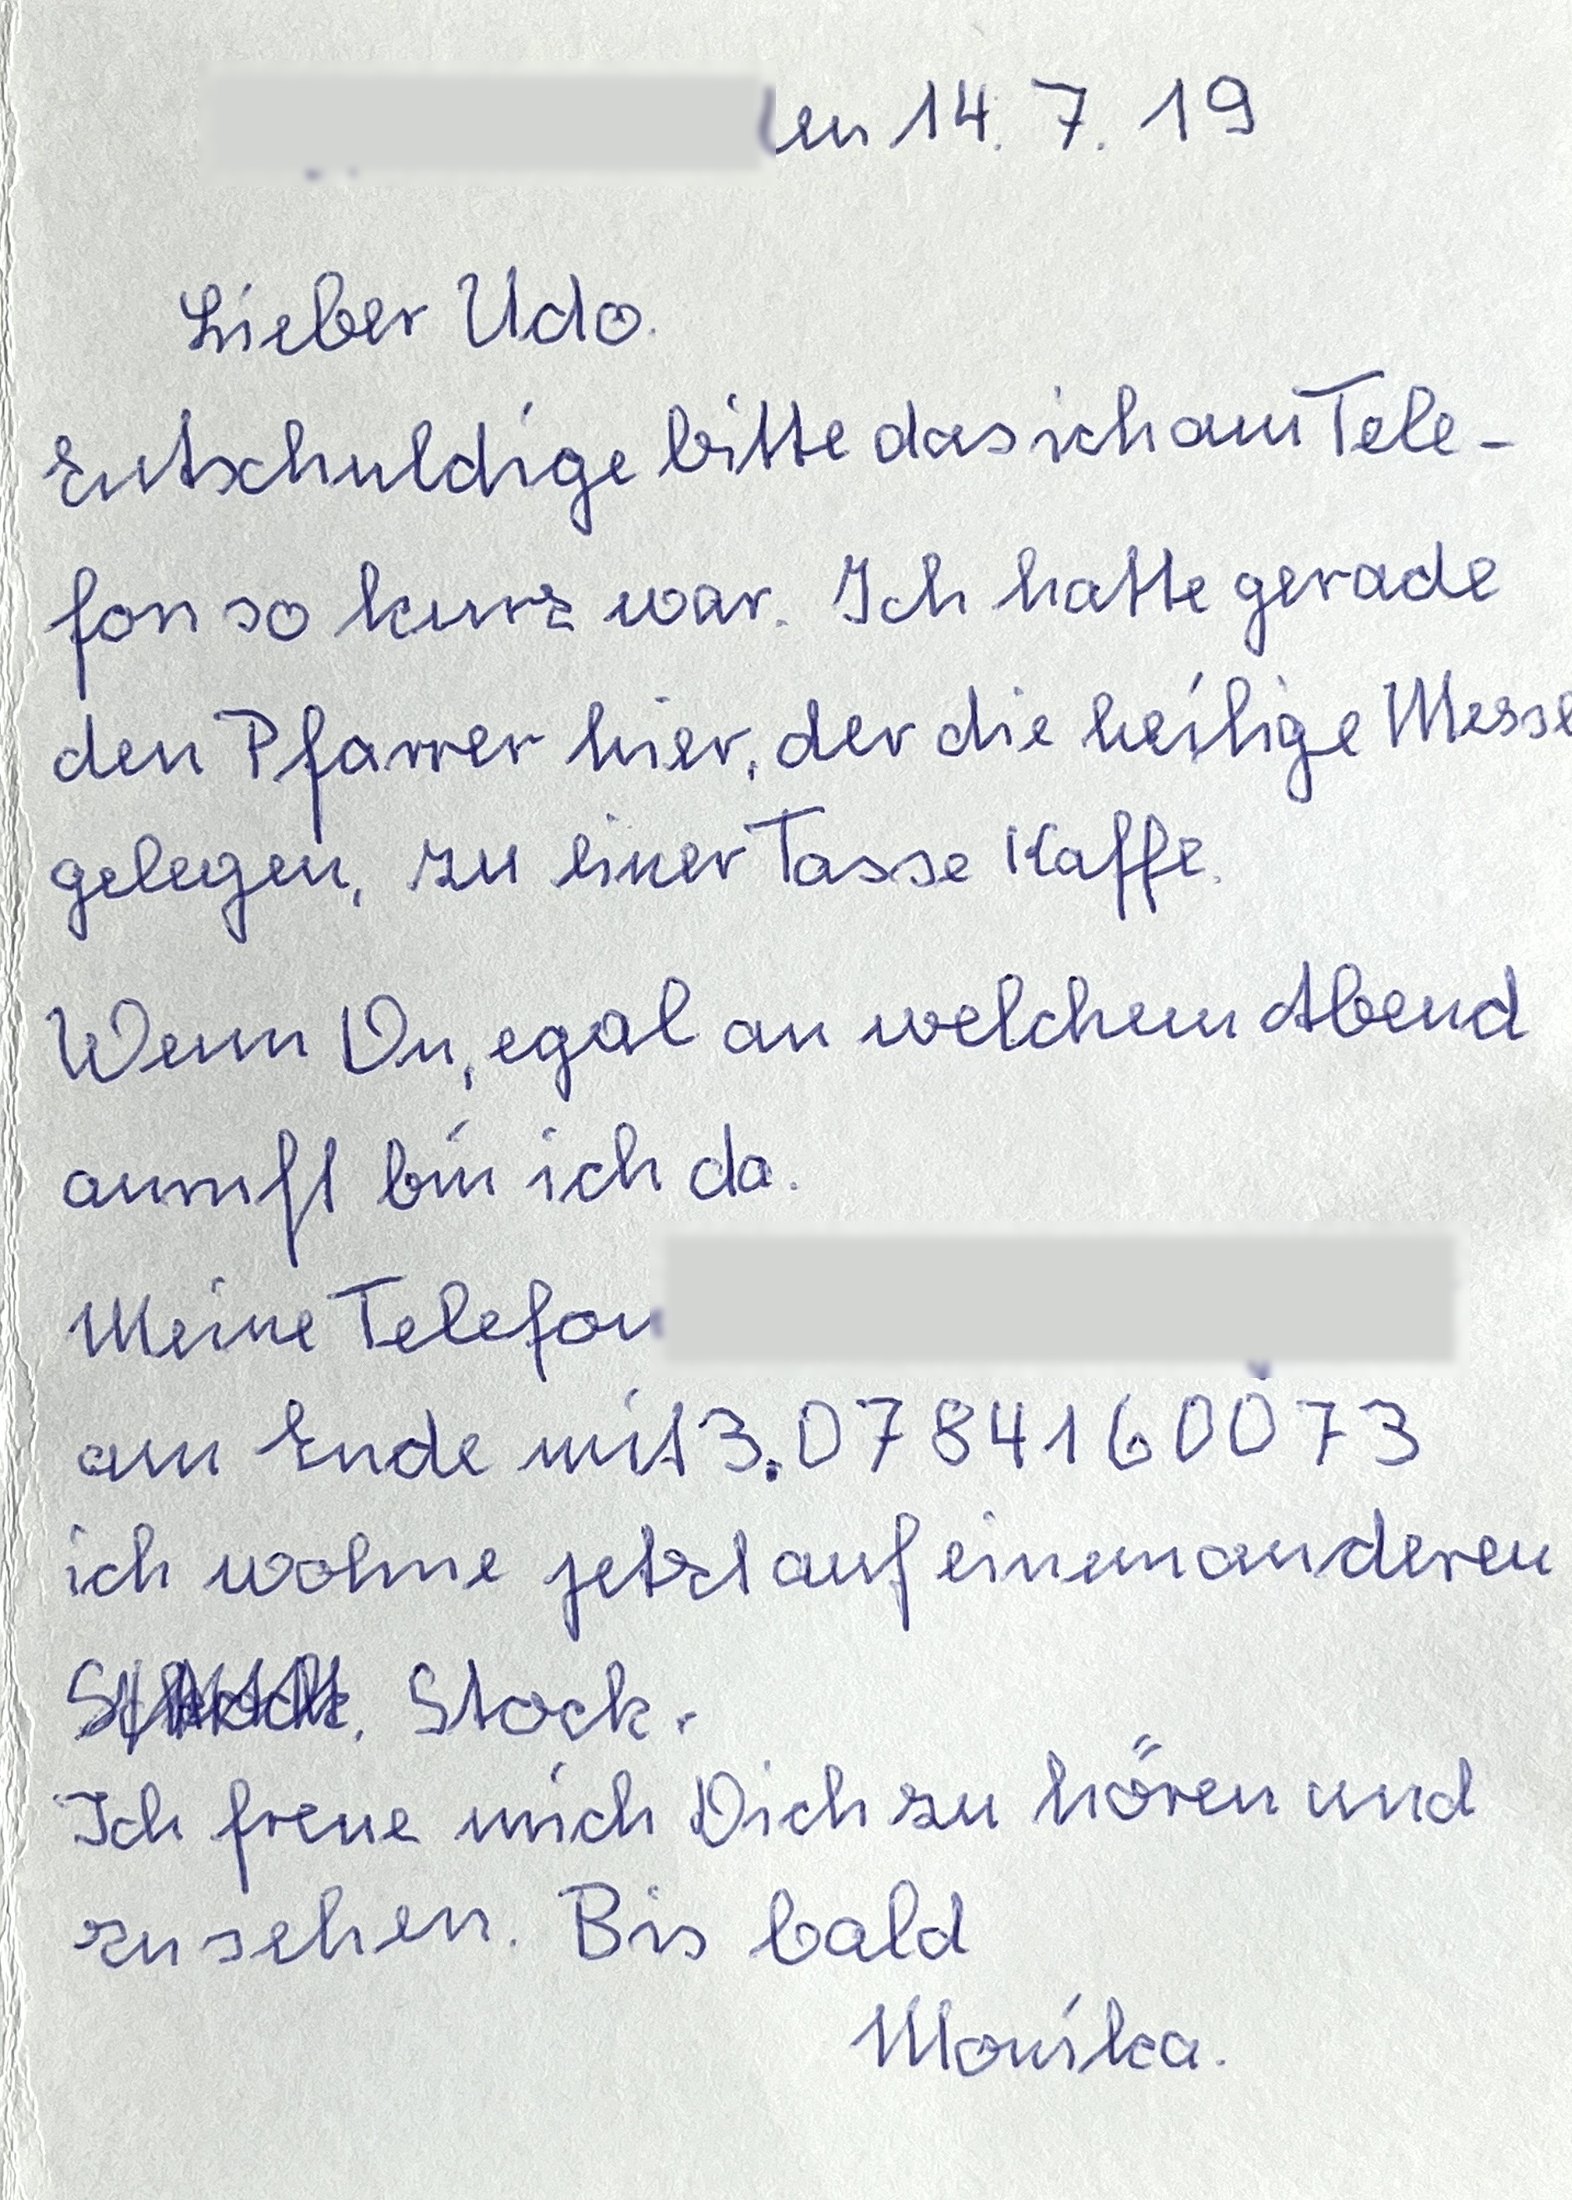 den 14. 7. 19
Lieber Udo.
Entschuldige bitte das ich am Tele-
fon so kurz war. Ich hatte gerade
den Pfarrer hier, der die heilige Messe
gelegen, zu einer Tasse Kaffe.
Wenn Du, egal an welchem Abend
anrufst bin ich da.
Meine Telefon
am Ende mit 3. 0784160073
ich wohne jetzt auf einem anderen
Stock.
Ich freue mich Dich zu hören und
zu sehen. Bis bald
Monika.